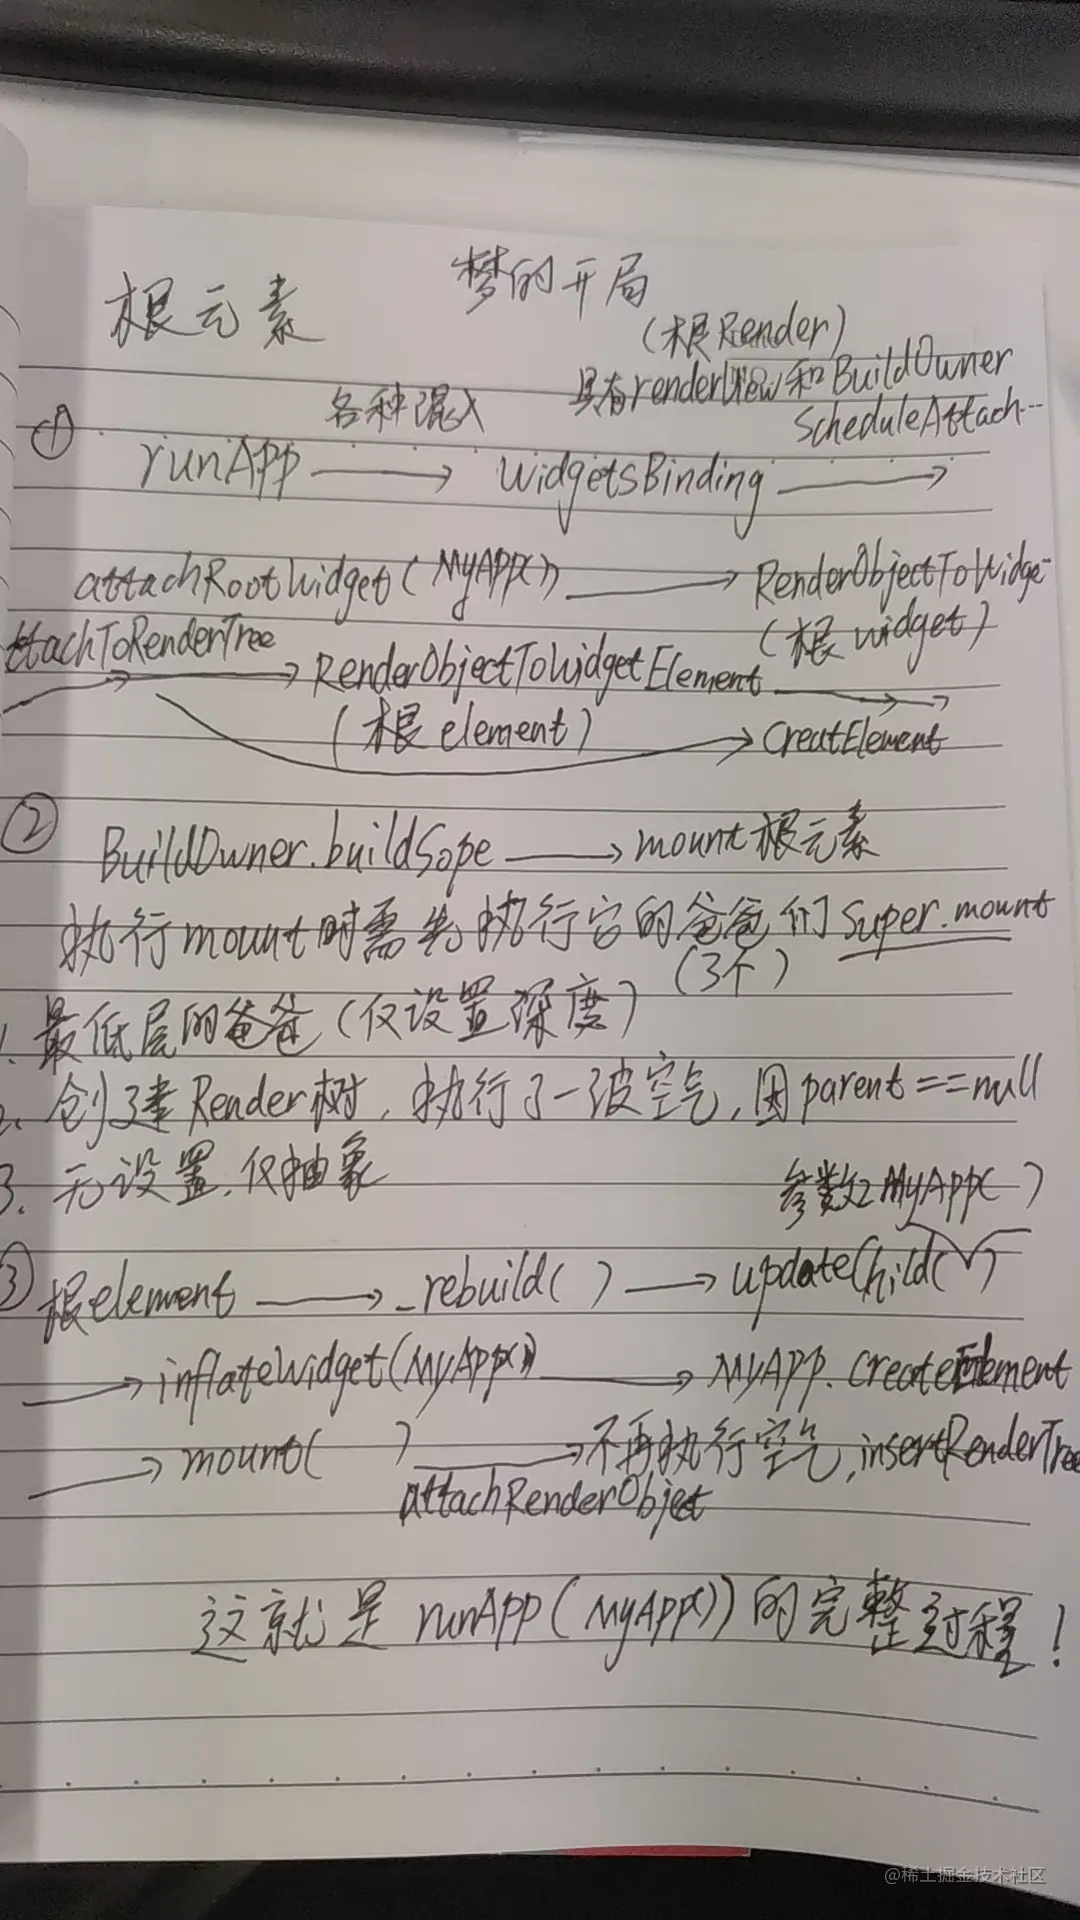 梦的开局
根元素
(根Render)
各种混入
具有renderView和BuildOwner
ScheduleAttach...
① runApp → WidgetsBinding →
attachRootWidget(MyApp()) → RenderObjectToWidge
(根widget)
ttachToRenderTree
→ RenderObjectToWidgetElement →
(根element) → CreatElement
② BuildOwner.buildSope → mount根元素
执行mount时需先执行它的爸爸们super.mount
(3个)
1. 最低层的爸爸(仅设置深度)
2. 创建Render树,执行了一波空气,因parent==null
3. 无设置,仅抽象
参数2MyApp()
③ 根element → _rebuild() → updateChild( )
→ inflateWidget(MyApp()) → MyApp.CreateElement
→ mount( ) → 不再执行空气,insertRenderTree
attachRenderObjet
这就是runApp(MyApp())的完整过程!
@稀土掘金技术社区